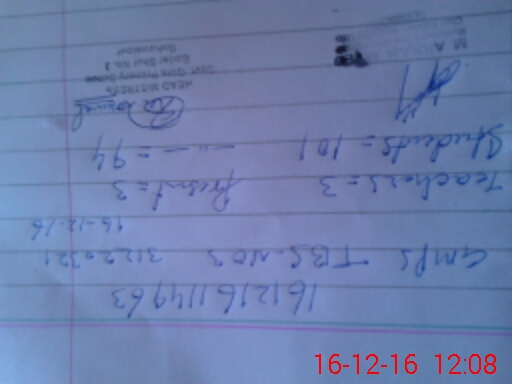 161216114963
GMPS TBS-NO3 31220321
16-12-16
Teachers = 3 Present = 3
Students = 101 —〃— = 94
HEAD MISTRESS
Govt Girls Primary School
No. 3
16-12-16 12:08